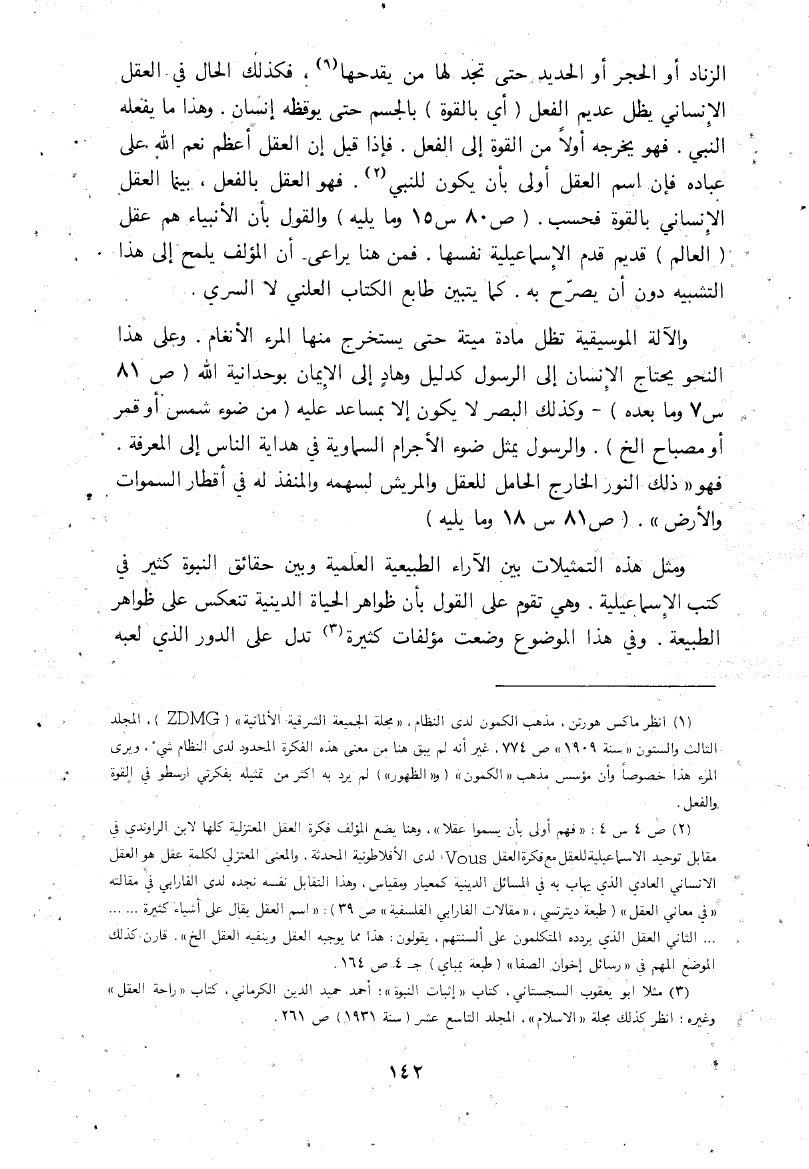 الزناد أو الحجر أو الحديد حتى تجد لها من يقدحها(٦) ، فكذلك الحال في العقل
الإنساني يظل عديم الفعل ( أي بالقوة ) بالجسم حتى يوقظه إنسان . وهذا ما يفعله
النبي . فهو يخرجه أولاً من القوة إلى الفعل . فإذا قيل إن العقل أعظم نعم الله على
عباده فإن اسم العقل أولى بأن يكون للنبي(٢) . فهو العقل بالفعل ، بينما العقل
الإنساني بالقوة فحسب . ( ص٨٠ س١٥ وما يليه ) والقول بأن الأنبياء هم عقل
( العالم ) قديم قدم الإسماعيلية نفسها . فمن هنا يراعى أن المؤلف يلمح إلى هذا
التشبيه دون أن يصرّح به . كما يتبين طابع الكتاب العلني لا السري .
والآلة الموسيقية تظل مادة ميتة حتى يستخرج منها المرء الأنغام . وعلى هذا
النحو يحتاج الإنسان إلى الرسول كدليل وهادٍ إلى الإيمان بوحدانية الله ( ص ٨١
س٧ وما بعده ) - وكذلك البصر لا يكون إلا بمساعد عليه ( من ضوء شمس أو قمر
أو مصباح الخ ) . والرسول يمثل ضوء الأجرام السماوية في هداية الناس إلى المعرفة .
فهو « ذلك النور الخارج الحامل للعقل والمريش لسهمه والمنفذ له في أقطار السموات
والأرض » . ( ص٨١ س ١٨ وما يليه )
ومثل هذه التمثيلات بين الآراء الطبيعية العلمية وبين حقائق النبوة كثير في
كتب الإسماعيلية . وهي تقوم على القول بأن ظواهر الحياة الدينية تنعكس على ظواهر
الطبيعة . وفي هذا الموضوع وضعت مؤلفات كثيرة(٣) تدل على الدور الذي لعبه
(١) انظر ماكس هورتن ، مذهب الكمون لدى النظام ، « مجلة الجمعية الشرقية الألمانية » ( ZDMG ) ، المجلد
الثالث والستون « سنة ١٩٠٩ » ص ٧٧٤ . غير أنه لم يبق هنا من معنى هذه الفكرة المحدود لدى النظام شيء ، ويرى
المرء هذا خصوصاً وأن مؤسس مذهب « الكمون » ( و« الظهور » ) لم يرد به اكثر من تمثيله بفكرتي ارسطو في القوة
والفعل .
(٢) ص ٤ س ٤ : « فهم أولى بأن يسموا عقلا » . وهنا يضع المؤلف فكرة العقل المعتزلية كلها لابن الراوندي في
مقابل توحيد الاسماعيلية للعقل مع فكرة العقل Vous لدى الأفلاطونية المحدثة . والمعنى المعتزلي لكلمة عقل هو العقل
الانساني العادي الذي يهاب به في المسائل الدينية كمعيار ومقياس . وهذا التقابل نفسه نجده لدى الفارابي في مقالته
« في معاني العقل » ( طبعة ديتريتسي ، « مقالات الفارابي الفلسفية » ص ٣٩ ) : « اسم العقل يقال على أشياء كثيرة ... ...
... الثاني العقل الذي يردده المتكلمون على ألسنتهم ، يقولون : هذا مما يوجبه العقل وينفيه العقل الخ » . قارن كذلك
الموضع المهم في « رسائل إخوان الصفا » ( طبعة بمباي ) جـ ٤ ص ١٦٤ .
(٣) مثلا ابو يعقوب السجستاني ، كتاب « إثبات النبوة » ؛ أحمد حميد الدين الكرماني ، كتاب « راحة العقل »
وغيره ؛ انظر كذلك مجلة « الاسلام » ، المجلد التاسع عشر ( سنة ١٩٣١ ) ص ٢٦١ .
١٤٢